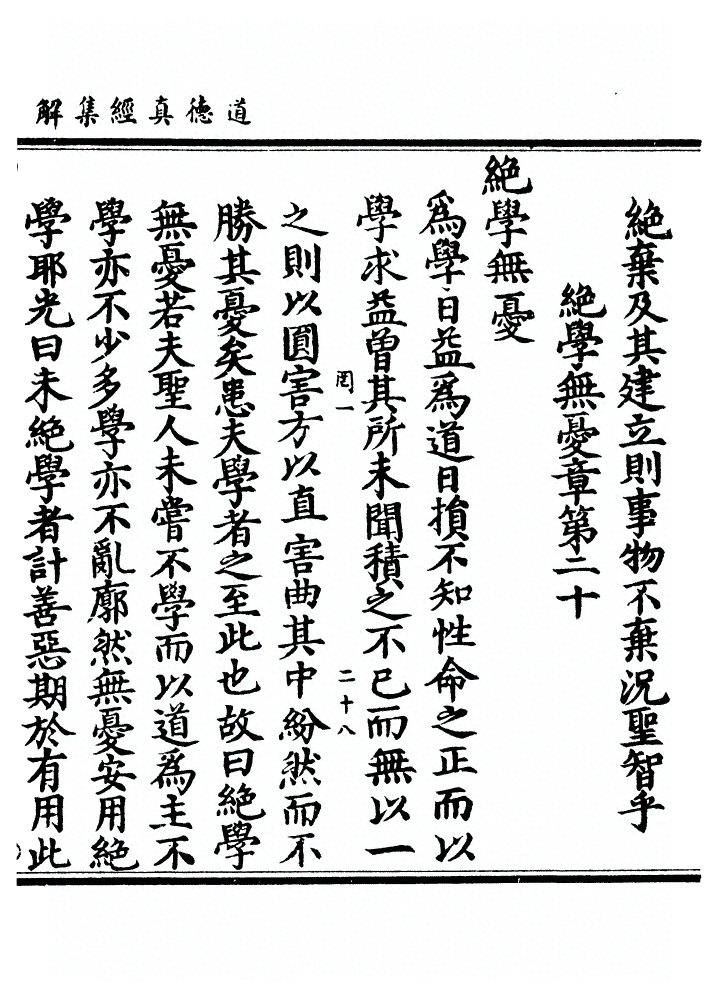 道德真經集解
絶棄及其建立則事物不棄況聖智乎
絶學無憂章第二十
絶學無憂
爲學日益爲道日損不知性命之正而以
學求益曽其所未聞積之不已而無以一
罔一
二十八
之則以圓害方以直害曲其中紛然而不
勝其憂矣患夫學者之至此也故曰絶學
無憂若夫聖人未嘗不學而以道爲主不
學亦不少多學亦不亂廓然無憂安用絶
學耶光曰未絶學者計善惡期於有用此